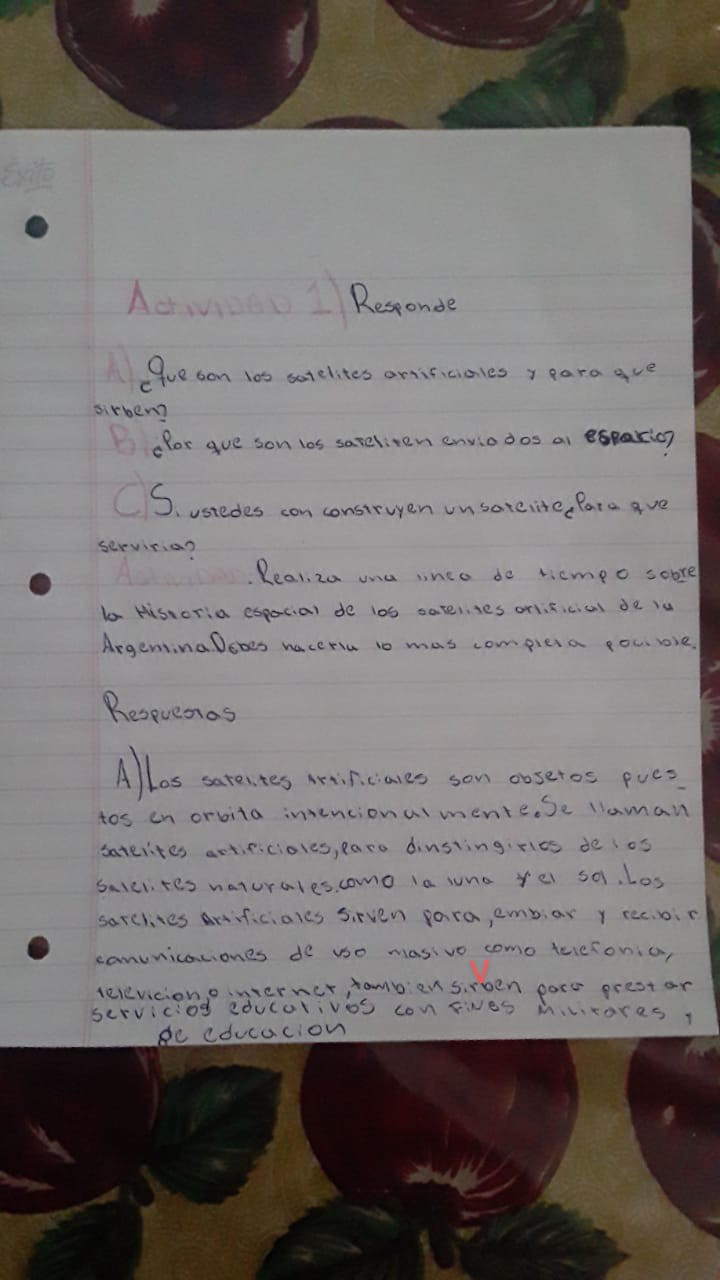 Exito
Actividad 1) Responde
A) ¿Que son los satelites artificiales y para que
sirben?
B) ¿Por que son los sateliten enviados al espacio?
C) Si ustedes con construyen un satelite ¿Para que
serviria?
Actividad. Realiza una linea de tiempo sobre
la Historia espacial de los satelites artificial de la
Argentina. Debes hacerla lo mas completa pocible.
Respuestas
A) Los satelites artificiales son objetos pues_
tos en orbita intencionalmente. Se llaman
satelites artificiales, para dinstingirlos de los
satelites naturales. como la luna y el sol. Los
satelites artificiales sirven para, embiar y recibir
comunicaciones de uso masivo como telefonia,
V
televicion, o internet, tambien sirben para prestar
servicios educativos con fines militares y
de educacion